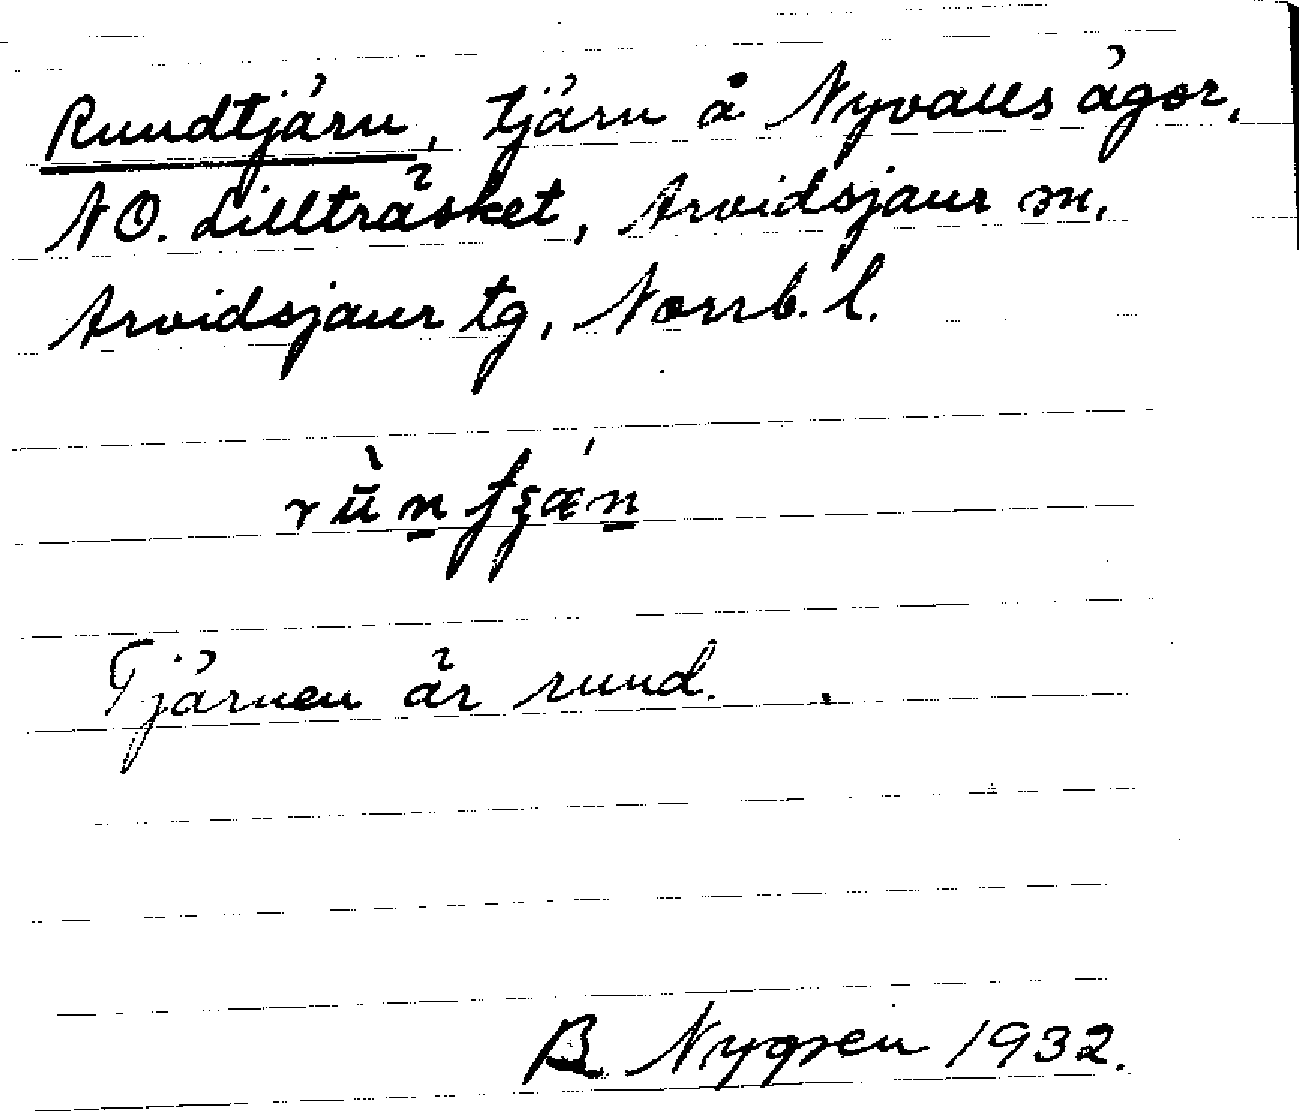 Rundtjärn, tjärn å Nyvalls ägor,
NO. Lillträsket, Arvidsjaur sn,
Arvidsjaur tg, Norrb. l.
Tjärnen är rund.
B. Nygren 1932.